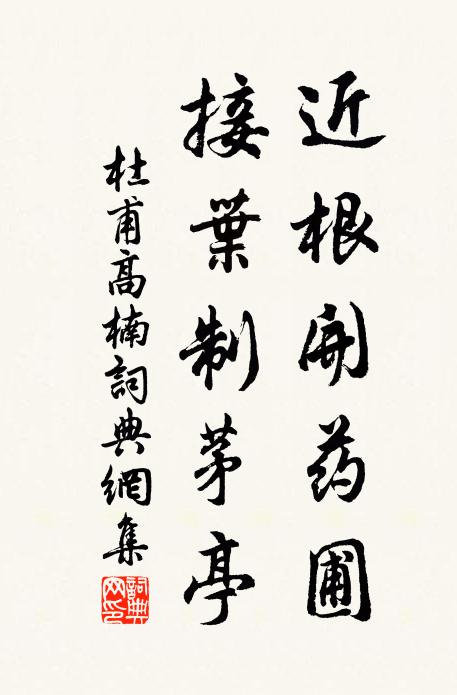 近根開药圃
接葉制茅亭
杜甫高楠詞典網集
詞典
网印